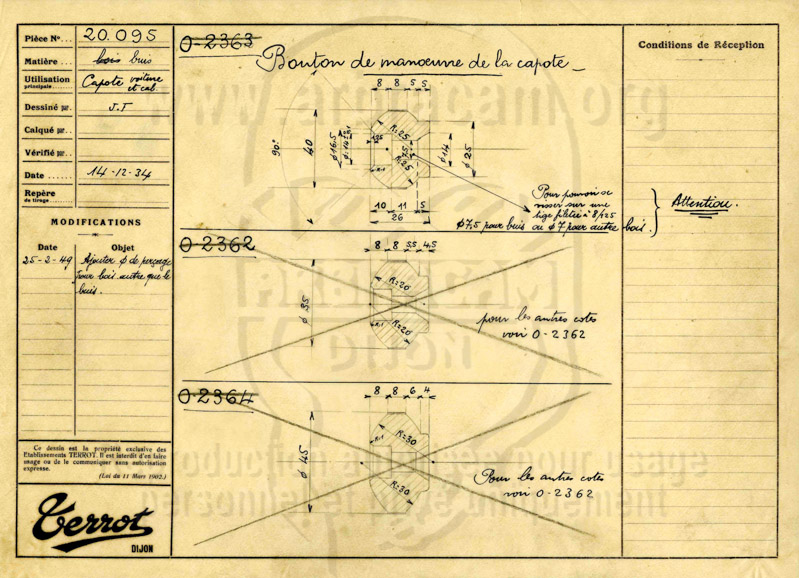 Pièce No... 20.095
Matière... bois buis
Utilisation principale... Capote voiture
et cab.
Dessiné par. J.T
Calqué par..
Vérifié par..
Date ...... 14-12-34
Repère
de tirage......
MODIFICATIONS
Date Objet
25-2-49 Ajouter ϕ de perçage
pour bois autre que le
buis.
Ce dessin est la propriété exclusive des
Etablissements TERROT. Il est interdit d'en faire
usage ou de le communiquer sans autorisation
expresse.
(Loi du 11 Mars 1902.)
Terrot
DIJON
0-2363
Bouton de manœuvre de la capote
8 8 5 5
90°
40
ϕ16.5
R=25
R=25
7.5
ϕ14
ϕ25
10 11 5
26
Pour pouvoir se
visser sur une
tige filetée à 8/125
ϕ7,5 pour buis ou ϕ7 pour autre bois.
0-2362
8 8 5,5 4,5
ϕ 35
R=20
R=20
pour les autres cotes
voir 0-2362
0-2364
8 8 6 4
ϕ 45
R=30
R=30
Pour les autres cotes
voir 0-2362
Conditions de Réception
Attention.
www.arbracam.org
ARBRACAM
DIJON
reproduction autorisée pour usage
personnel et privé uniquement